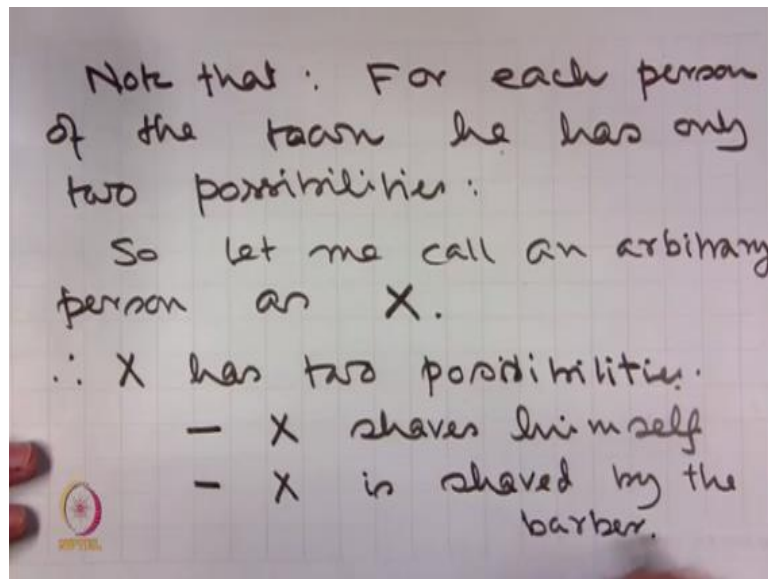 Note that : For each person
of the town he has only
two possibilities :
So let me call an arbitrary
person as X.
∴ X has two possibilities.
- X shaves himself
- X is shaved by the
barber.
NPTEL